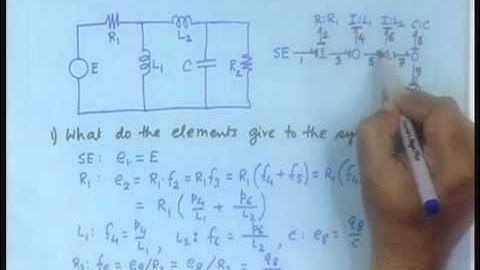 R₁ L₂
E L₁ C R₂
R:R₁ I:L₁ I:L₂ C:C
2 4 6 8
SE 1 1 3 0 5 1 7 0
9
1) What do the elements give to the sy
SE: e₁ = E
R₁: e₂ = R₁·f₂ = R₁f₃ = R₁(f₄ + f₅) = R₁(f₄
= R₁(p₄/L₁ + p₆/L₂)
L₁: f₄ = p₄/L₁, L₂: f₆ = p₆/L₂, C: e₈ = q₈/C
R₂: f₉ = e₉/R₂ = e₈/R₂ = q₈